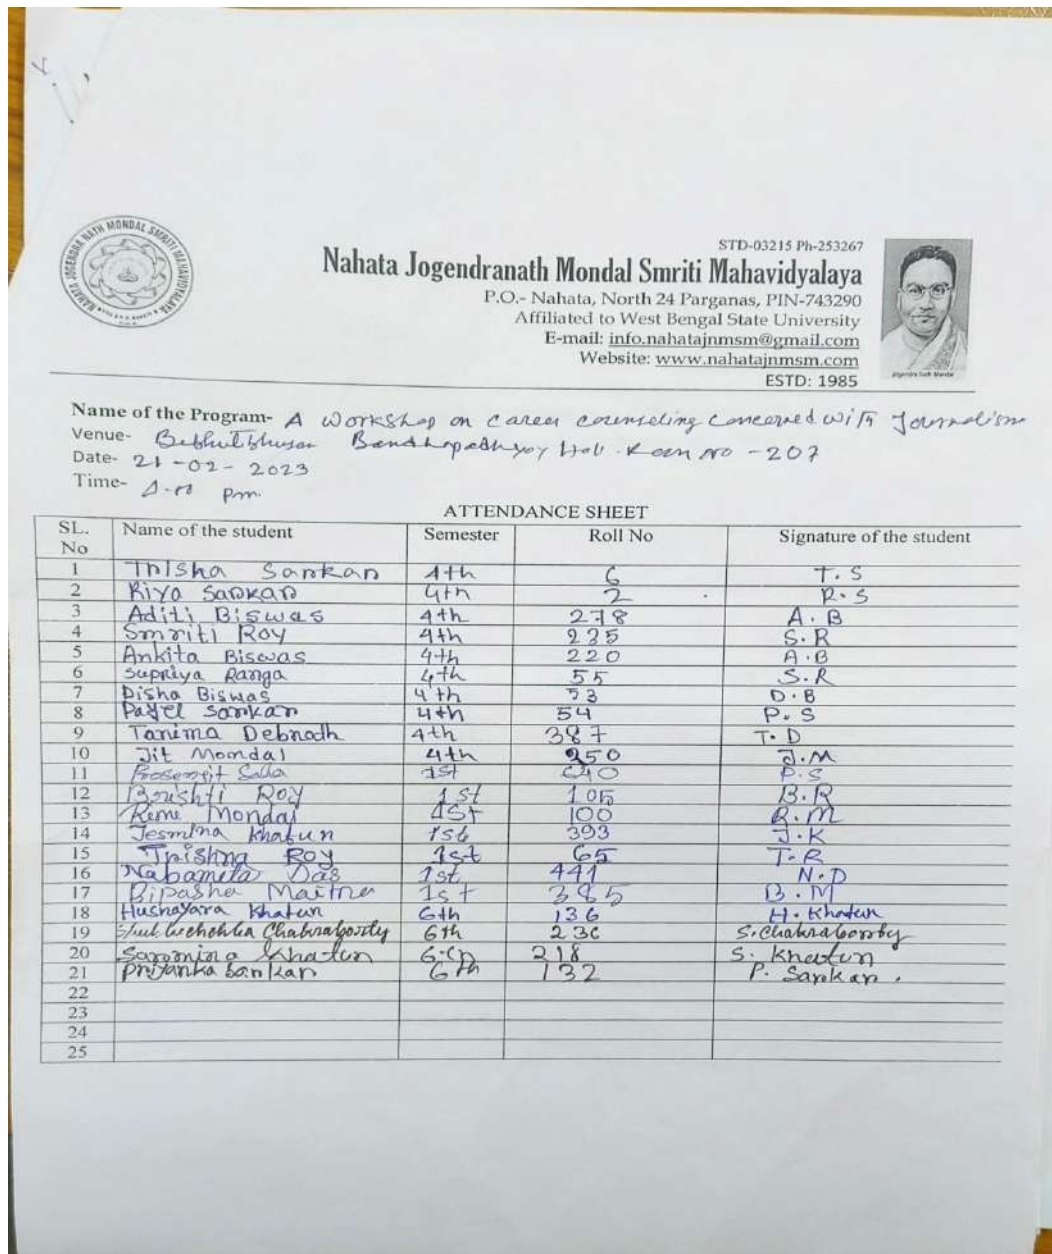 NAHATA JOGENDRA NATH MONDAL SMRITI MAHAVIDYALAYA
STD-03215 Ph-253267
Nahata Jogendranath Mondal Smriti Mahavidyalaya
P.O.- Nahata, North 24 Parganas, PIN-743290
Affiliated to West Bengal State University
E-mail: info.nahatajnmsm@gmail.com
Website: www.nahatajnmsm.com
ESTD: 1985
Jogendra Nath Mandal
Name of the Program- A Workshop on career counseling concerned with Journalism
Venue- Bibhutibhusan Bandhopadhyay Hall Room no - 207
Date- 21-02-2023
Time- pm.
ATTENDANCE SHEET
SL. No Name of the student Semester Roll No Signature of the student
1 Trisha Sarkar 4th 6 T.S
2 Riya Sarkar 4th 2 R.S
3 Aditi Biswas 4th 278 A.B
4 Smriti Roy 4th 235 S.R
5 Ankita Biswas 4th 220 A.B
6 Supriya Ranga 4th 55 S.R
7 Disha Biswas 4th 53 D.B
8 Payel Sarkar 4th 54 P.S
9 Tanima Debnath 4th 387 T.D
10 Jit Mondal 4th 250 J.M
11 Prosenjit 1st P.S
12 Brishti Roy 1st 105 B.R
13 Mondal 1st 100 R.M
14 Jesmina Khatun 1st 393 J.K
15 Trishna Roy 1st 65 T.R
16 Nabamita Das 1st 441 N.D
17 Bipasha Maitra 1st 385 B.M
18 Husnayara Khatun 6th 136 H. Khatun
19 Chakraborty 6th S. Chakraborty
20 Khatun 218 S. Khatun
21 Priyanka Sarkar 6th 132 P. Sarkar.
22
23
24
25